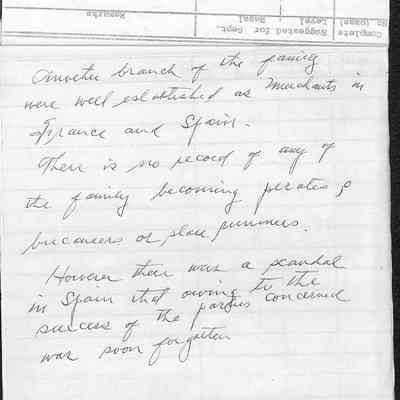 Complete Suggested for Sept.
No (base) Level : Basal
Remarks
Another branch of the family
were well established as Merchants in
France and Spain.
There is no record of any of
the family becoming pirates,
bucaneers or slave runners.
However there was a scandal
in Spain that owing to the
success of the parties concerned
was soon forgotten